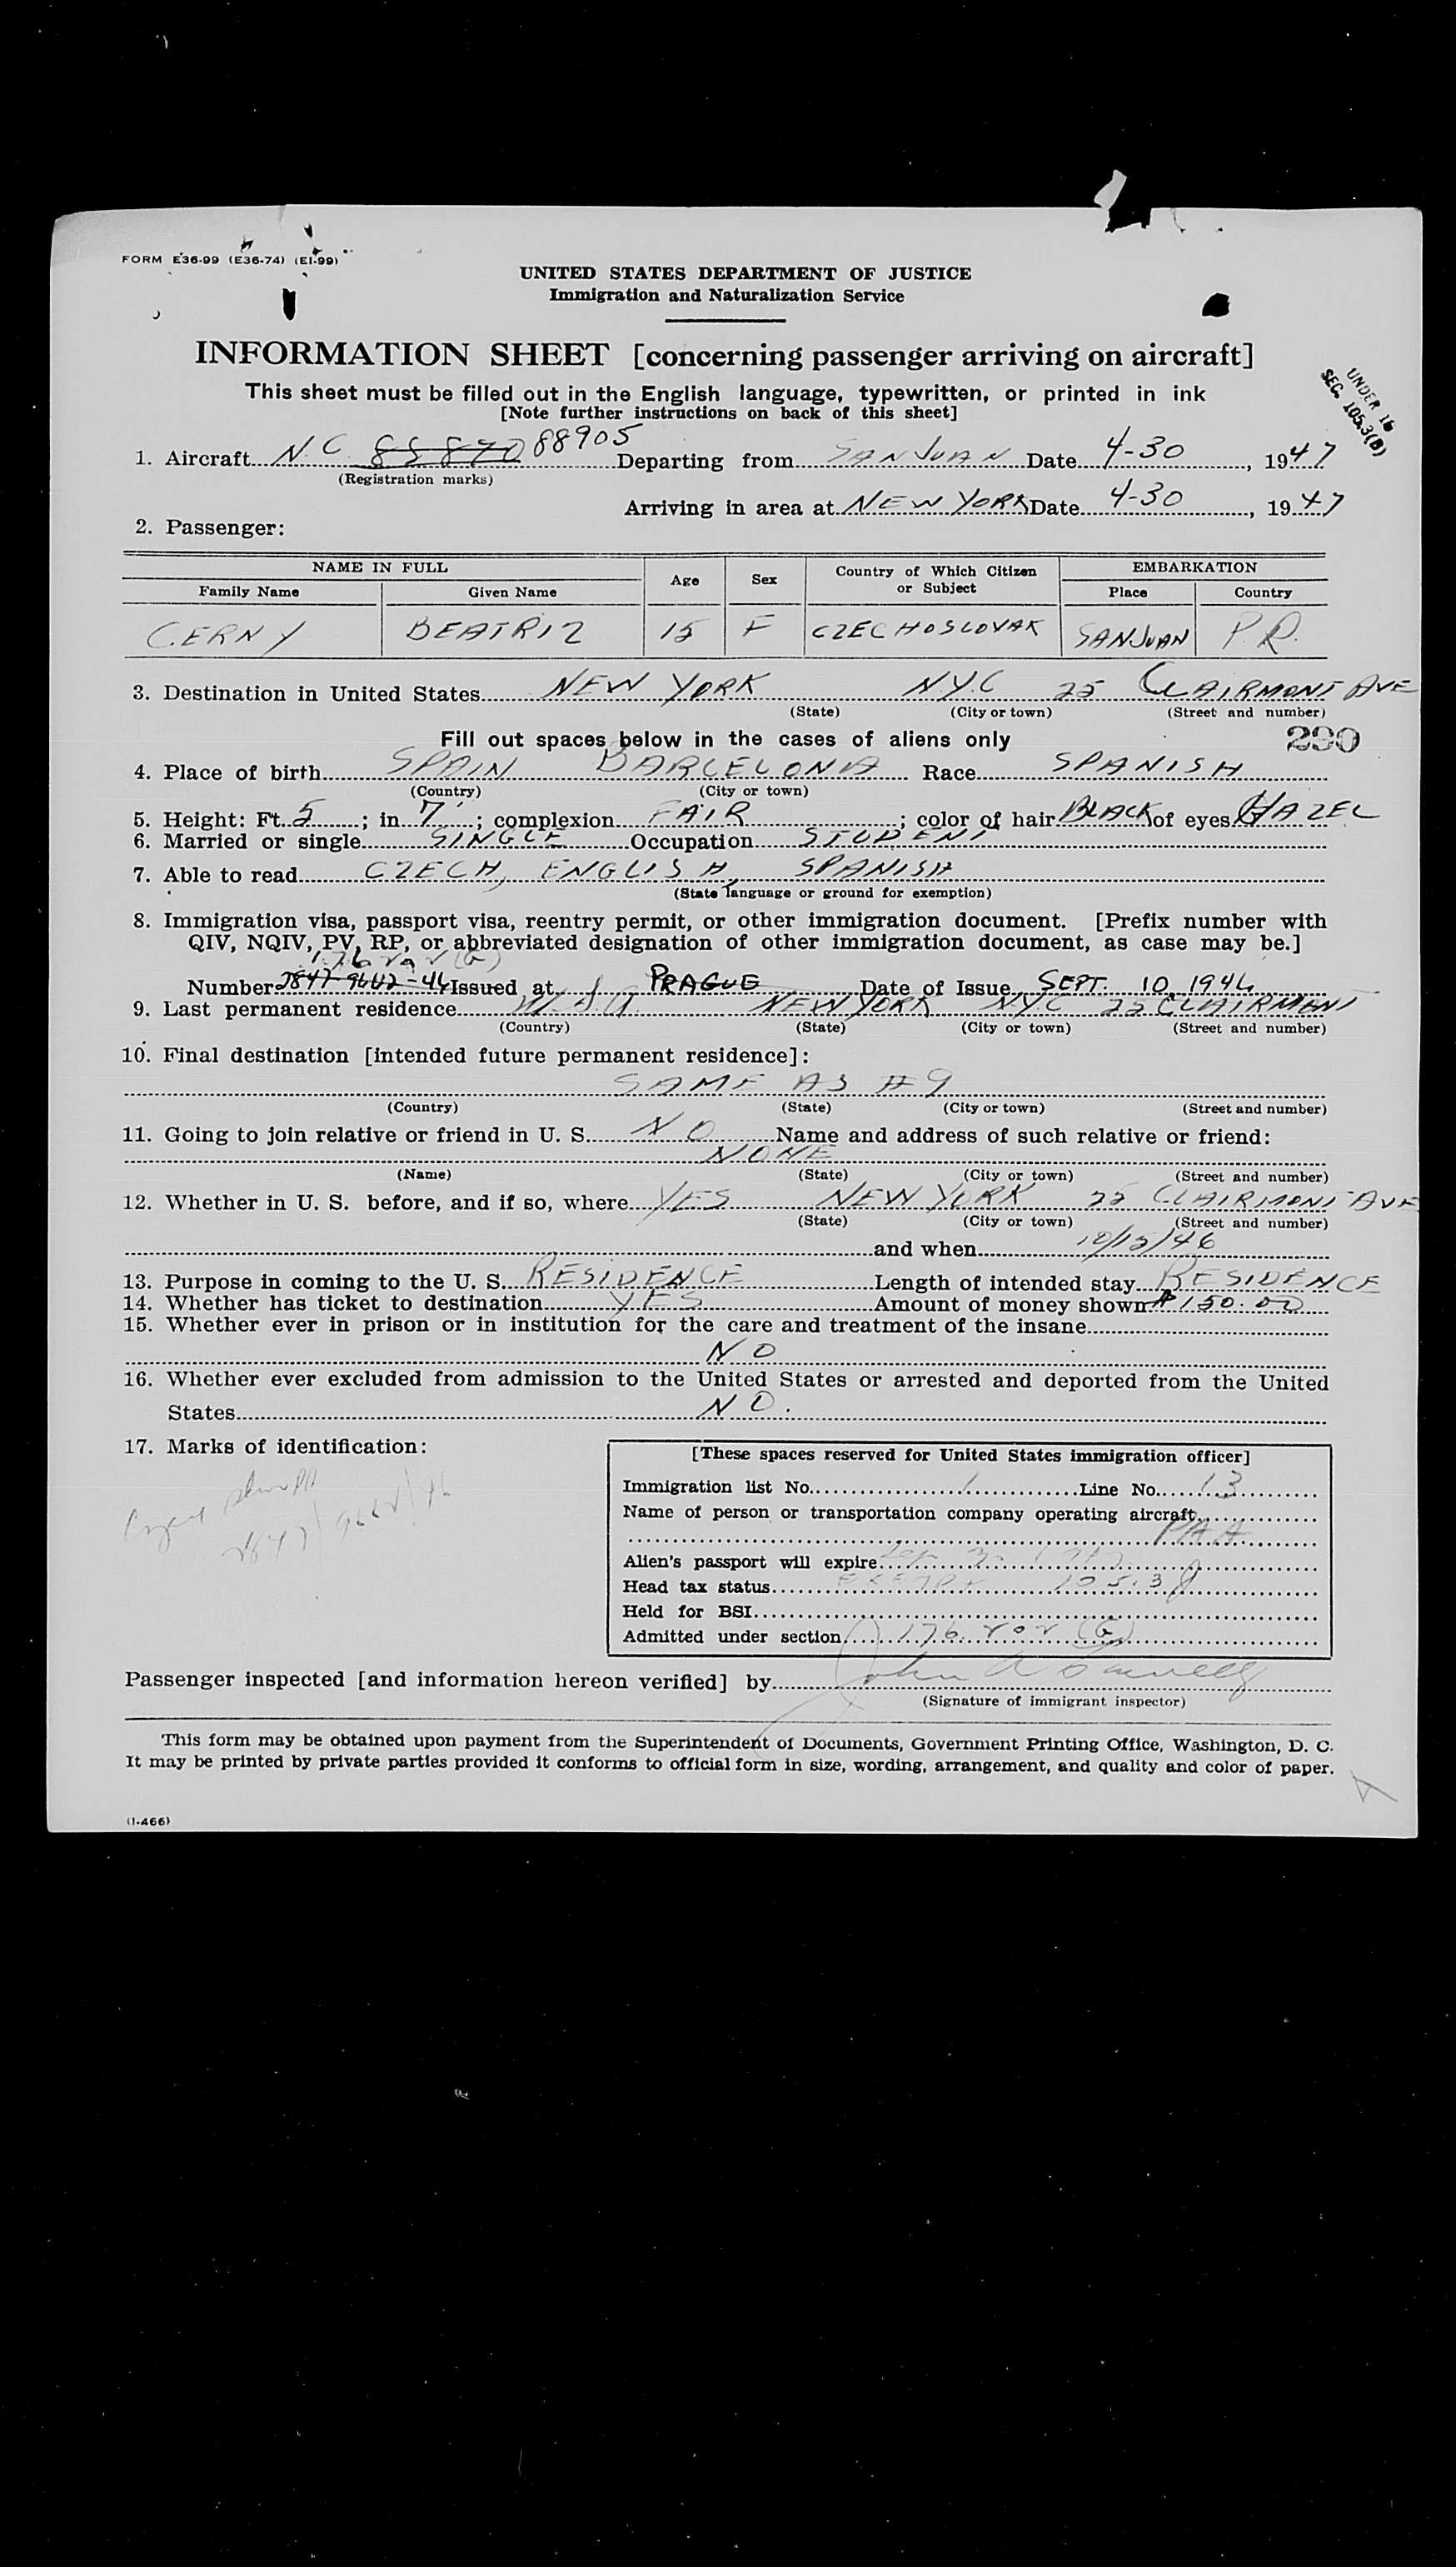 FORM E36-99 (E36-74) (EI-99)
UNITED STATES DEPARTMENT OF JUSTICE
Immigration and Naturalization Service
INFORMATION SHEET [concerning passenger arriving on aircraft]
This sheet must be filled out in the English language, typewritten, or printed in ink
[Note further instructions on back of this sheet]
UNDER 16
SEC. 105.3(B)
1. Aircraft N.C. 85870 88905 Departing from SAN JUAN Date 4-30, 1947
(Registration marks)
Arriving in area at NEW YORK Date 4-30, 1947
2. Passenger:
NAME IN FULL Age Sex Country of Which Citizen or Subject EMBARKATION
Family Name Given Name Place Country
CERNY BEATRIZ 15 F CZECHOSLOVAK SANJUAN P.R.
3. Destination in United States NEW YORK N.Y.C 25 CLAIRMONT AVE
(State) (City or town) (Street and number)
Fill out spaces below in the cases of aliens only 290
4. Place of birth SPAIN BARCELONA Race SPANISH
(Country) (City or town)
5. Height: Ft. 5; in. 7; complexion FAIR; color of hair BLACK of eyes HAZEL
6. Married or single SINGLE Occupation STUDENT
7. Able to read CZECH, ENGLISH, SPANISH
(State language or ground for exemption)
8. Immigration visa, passport visa, reentry permit, or other immigration document. [Prefix number with
QIV, NQIV, PV, RP, or abbreviated designation of other immigration document, as case may be.]
Number Issued at PRAGUE Date of Issue SEPT. 10, 1946
9. Last permanent residence U.S.A. NEW YORK N.Y.C 25 CLAIRMONT
(Country) (State) (City or town) (Street and number)
10. Final destination [intended future permanent residence]:
SAME AS #9
(Country) (State) (City or town) (Street and number)
11. Going to join relative or friend in U. S. NO Name and address of such relative or friend:
NONE
(Name) (State) (City or town) (Street and number)
12. Whether in U. S. before, and if so, where YES NEW YORK 25 CLAIRMONT AVE
(State) (City or town) (Street and number)
and when
13. Purpose in coming to the U. S. RESIDENCE Length of intended stay RESIDENCE
14. Whether has ticket to destination YES Amount of money shown $150.00
15. Whether ever in prison or in institution for the care and treatment of the insane
NO
16. Whether ever excluded from admission to the United States or arrested and deported from the United
States NO.
17. Marks of identification:
[These spaces reserved for United States immigration officer]
Immigration list No. 1 Line No. 13
Name of person or transportation company operating aircraft
PAA
Alien's passport will expire
Head tax status EXEMPT 105.3
Held for BSI
Admitted under section 176
Passenger inspected [and information hereon verified] by John
(Signature of immigrant inspector)
This form may be obtained upon payment from the Superintendent of Documents, Government Printing Office, Washington, D. C.
It may be printed by private parties provided it conforms to official form in size, wording, arrangement, and quality and color of paper.
(I-466)